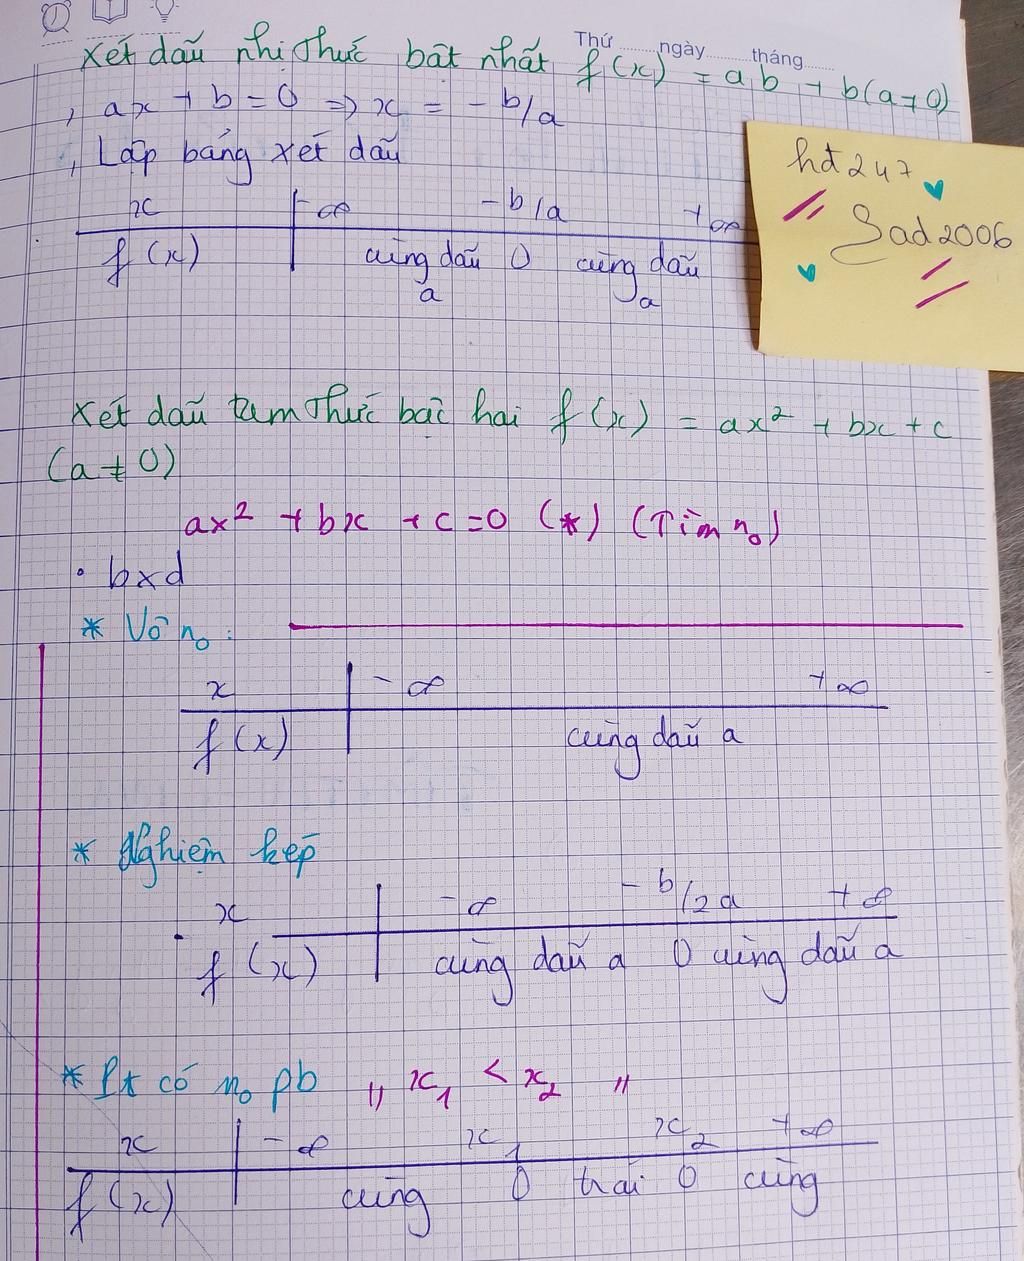 Thứ ........ ngày ........ tháng ........
Xét dấu nhị thức bât nhất f(x) = ab + b(a≠0)
, ax + b = 0 => x = - b/a
, Lập bảng xét dấu
x -∞ -b/a +∞
f(x) cùng dấu a 0 cùng dấu a
hđ247
Sad2006
Xét dấu tam thức bậc hai f(x) = ax² + bx + c
(a ≠ 0)
ax² + bx + c = 0 (*) (Tìm n₀)
• bxd
* Vô n₀ :
x -∞ +∞
f(x) cùng dấu a
* Nghiệm kép
x -∞ -b/2a +∞
f(x) cùng dấu a 0 cùng dấu a
* Pt có n₀ pb ,, x₁ < x₂ "
x -∞ x₁ x₂ +∞
f(x) cùng 0 trái 0 cùng